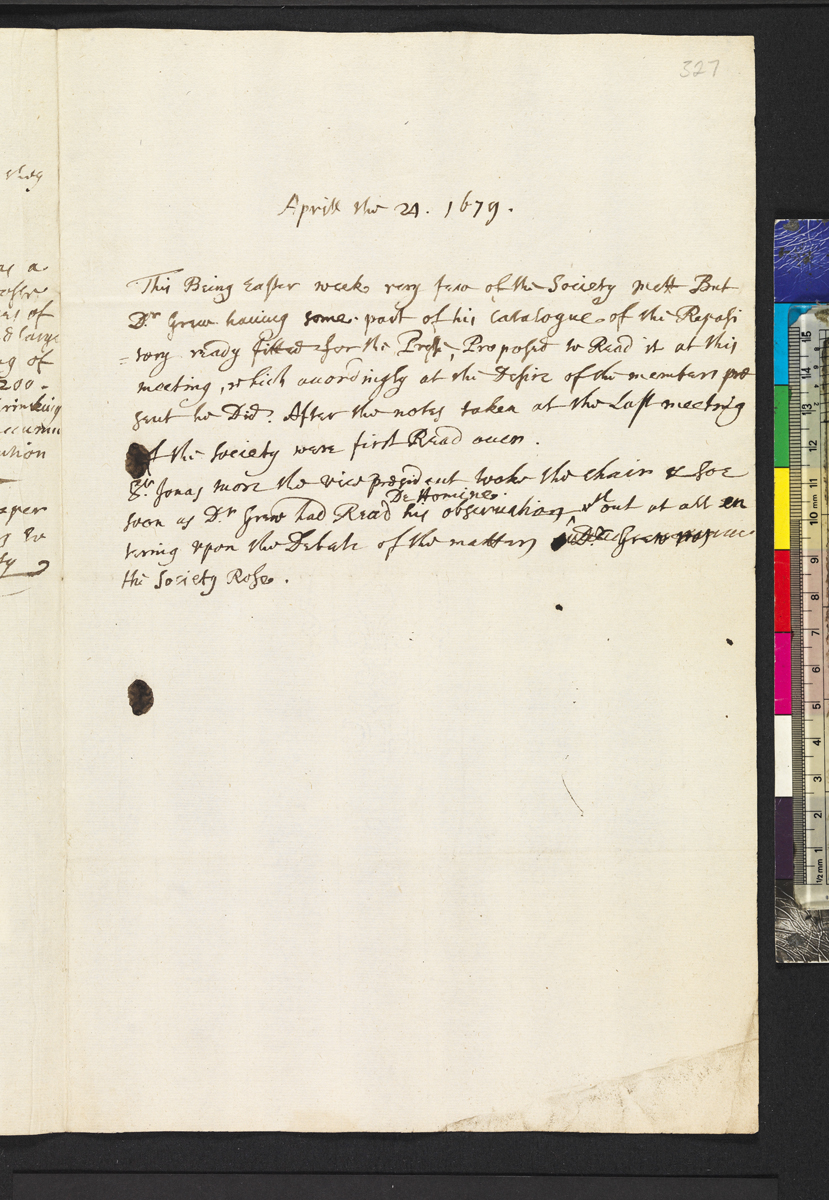 327
Aprill the 24. 1679.
This Being Easter week very few of the Society mett But
Dr. Grew hauing some part of his Catalogue of the Reposi
=tory ready fitted for the Press, Proposed to Read it at this
meeting, which accordingly at the Desire of the members pre
sent he Did. After the notes taken at the Last meeting
of the Society were first Read ouer.
Sr. Jonas more the vice president tooke the chair & soe
soon as Dr. Grew had Read his obseruations De Homine. wthout at all en
tering vpon the Debate of the matters Dr. Grew
the Society Rose.
they
as a
of
& large
of
200
drinking